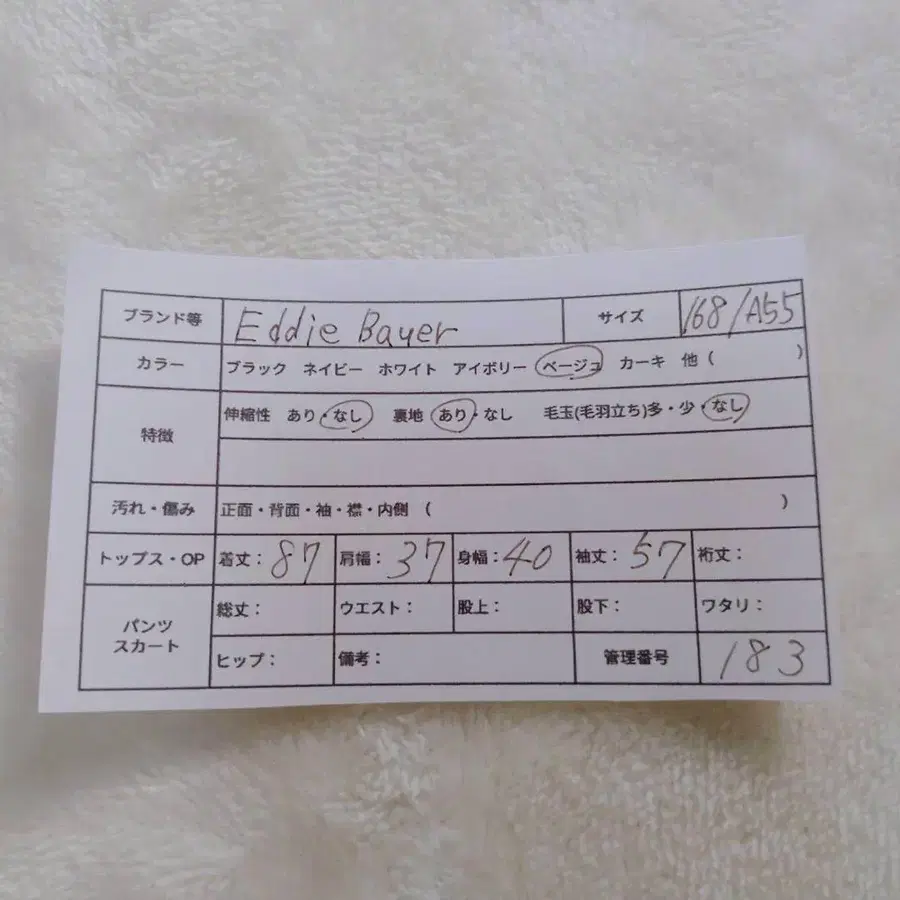 ブランド等 Eddie Bauer サイズ 168/A55
カラー ブラック ネイビー ホワイト アイボリー ベージュ カーキ 他( )
特徴 伸縮性 あり・なし 裏地 あり・なし 毛玉(毛羽立ち)多・少・なし
汚れ・傷み 正面・背面・袖・襟・内側 ( )
トップス・OP 着丈: 87 肩幅: 37 身幅: 40 袖丈: 57 裄丈:
パンツ
スカート
総丈: ウエスト: 股上: 股下: ワタリ:
ヒップ: 備考: 管理番号 183